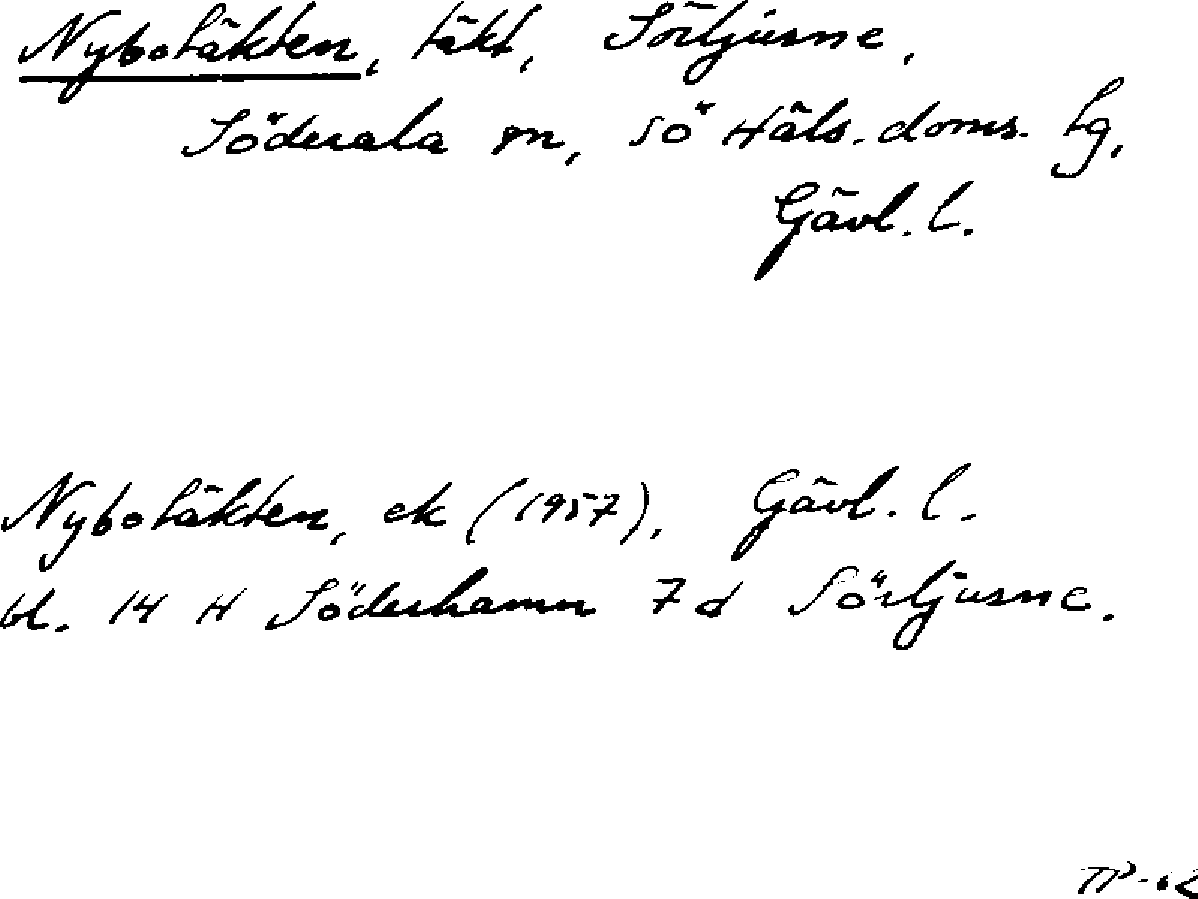 Nybotäkten, täkt, Sörljusne,
Söderala sn, sö Häls. doms. tg,
Gävl. l.
Nybotäkten, ek (1957), Gävl. l.
bl. 14 H Söderhamn 7d Sörljusne.
TP-62